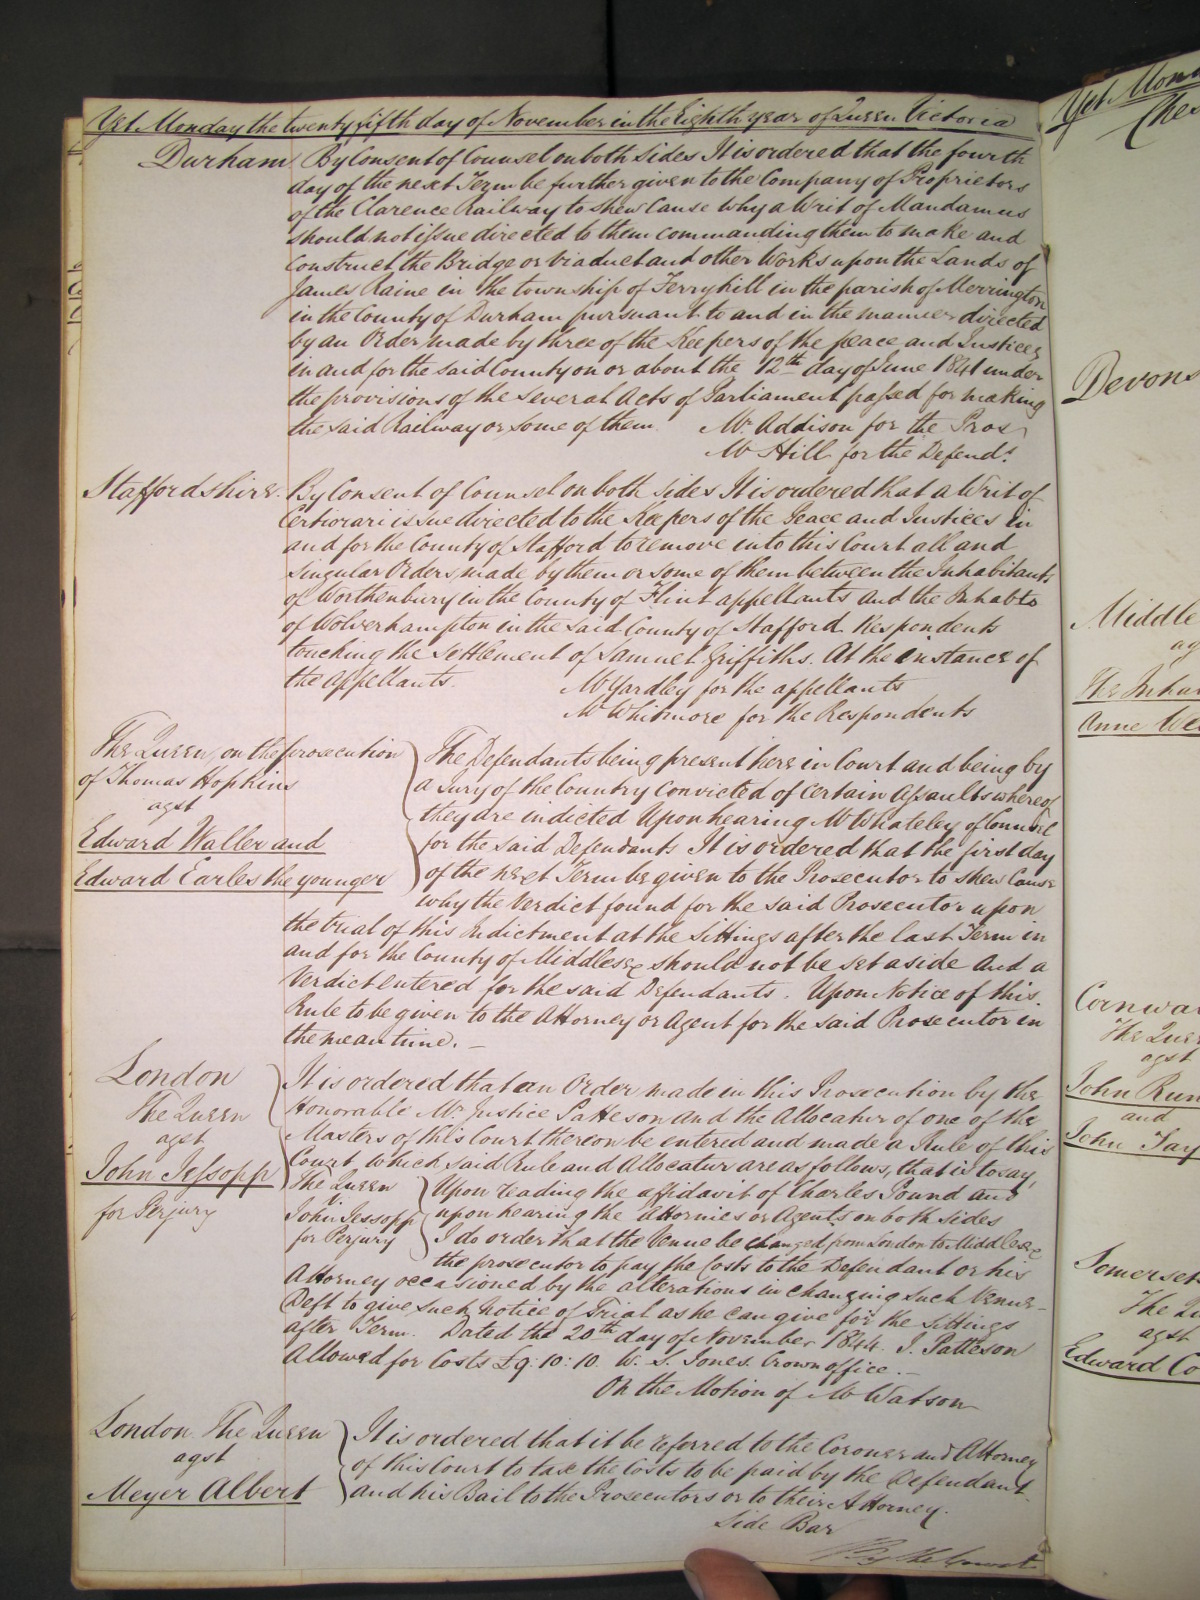 Yet Monday the twenty fifth day of November in the Eighth year of Queen Victoria
Durham By Consent of Counsel on both sides It is ordered that the fourth
day of the next Term be further given to the Company of Proprietors
of the Clarence Railway to shew Cause why a Writ of Mandamus
should not issue directed to them commanding them to make and
construct the Bridge or Viaduct and other Works upon the Lands of
James Raine in the township of Ferryhill in the parish of Merrington
in the County of Durham pursuant to and in the manner directed
by an Order made by three of the Keepers of the peace and Justices
in and for the said County on or about the 12th day of June 1841 under
the provisions of the several Acts of Parliament passed for making
the said Railway or some of them. Mr Addison for the Pros
Mr Hill for the Defendt
Staffordshire. By Consent of Counsel on both sides It is ordered that a Writ of
Certiorari issue directed to the Keepers of the Peace and Justices in
and for the County of Stafford to remove into this Court all and
singular Orders made by them or some of them between the Inhabitants
of Worthenbury in the County of Flint appellants and the Inhabts
of Wolverhampton in the said County of Stafford Respondents
touching the Settlement of Samuel Griffiths. At the instance of
the appellants. Mr Yardley for the appellants
Mr Whitmore for the Respondents
The Queen, on the prosecution
of Thomas Hopkins
agst
Edward Waller and
Edward Earles the younger
The Defendants being present here in Court and being by
a Jury of the Country Convicted of certain Assaults whereof
they are indicted Upon hearing Mr Whateley of Counsel
for the said Defendants It is ordered that the first day
of the next Term be given to the Prosecutor to shew Cause
why the Verdict found for the said Prosecutor upon
the trial of this Indictment at the Sittings after the last Term in
and for the County of Middlesex should not be set aside and a
Verdict entered for the said Defendants. Upon Notice of this
Rule to be given to the Attorney or Agent for the said Prosecutor in
the mean time. –
London
The Queen
agst
John Jessopp
for Perjury
It is ordered that an Order made in this Prosecution by the
Honorable Mr Justice Patteson and the Allocatur of one of the
Masters of this Court thereon be entered and made a Rule of this
Court which said Rule and Allocatur are as follows, that is to say,
The Queen
v
John Jessopp
for Perjury
Upon reading the affidavit of Charles Pound and
upon hearing the Attornies or Agents on both sides
I do order that the Venue be changed from London to Middlesex
the prosecutor to pay the Costs to the Defendant or his
Attorney occasioned by the alterations in changing such Venue –
Deft to give such notice of Trial as he can give for the Sittings
after Term. Dated the 20th day of November 1844. J. Patteson
Allowed for Costs £9:10:10. W. S. Jones. Crown office. –
On the Motion of Mr Watson
London The Queen
agst
Meyer Albert
It is ordered that it be referred to the Coroner and Attorney
of this Court to tax the Costs to be paid by the Defendant
and his Bail to the Prosecutors or to their Attorney.
Side Bar
By the Court
Yet Mon
Devons
Middle
ag
The Inha
Anne We
Cornwa
The Quee
agst
John Run
and
John Jay
Somerset
The Qu
agst
Edward Co